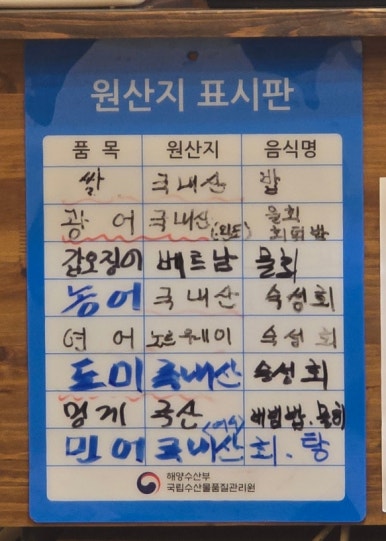 원산지 표시판
품 목 원산지 음식명
쌀 국내산 밥
광 어 국내산 (완도) 물회 회덮밥
갑오징어 베트남 물회
농어 국내산 숙성회
연 어 노르웨이 숙성회
도미 국내산 숙성회
멍게 국산 비빔밥.물회
민어 국내산 회.탕
해양수산부
국립수산물품질관리원